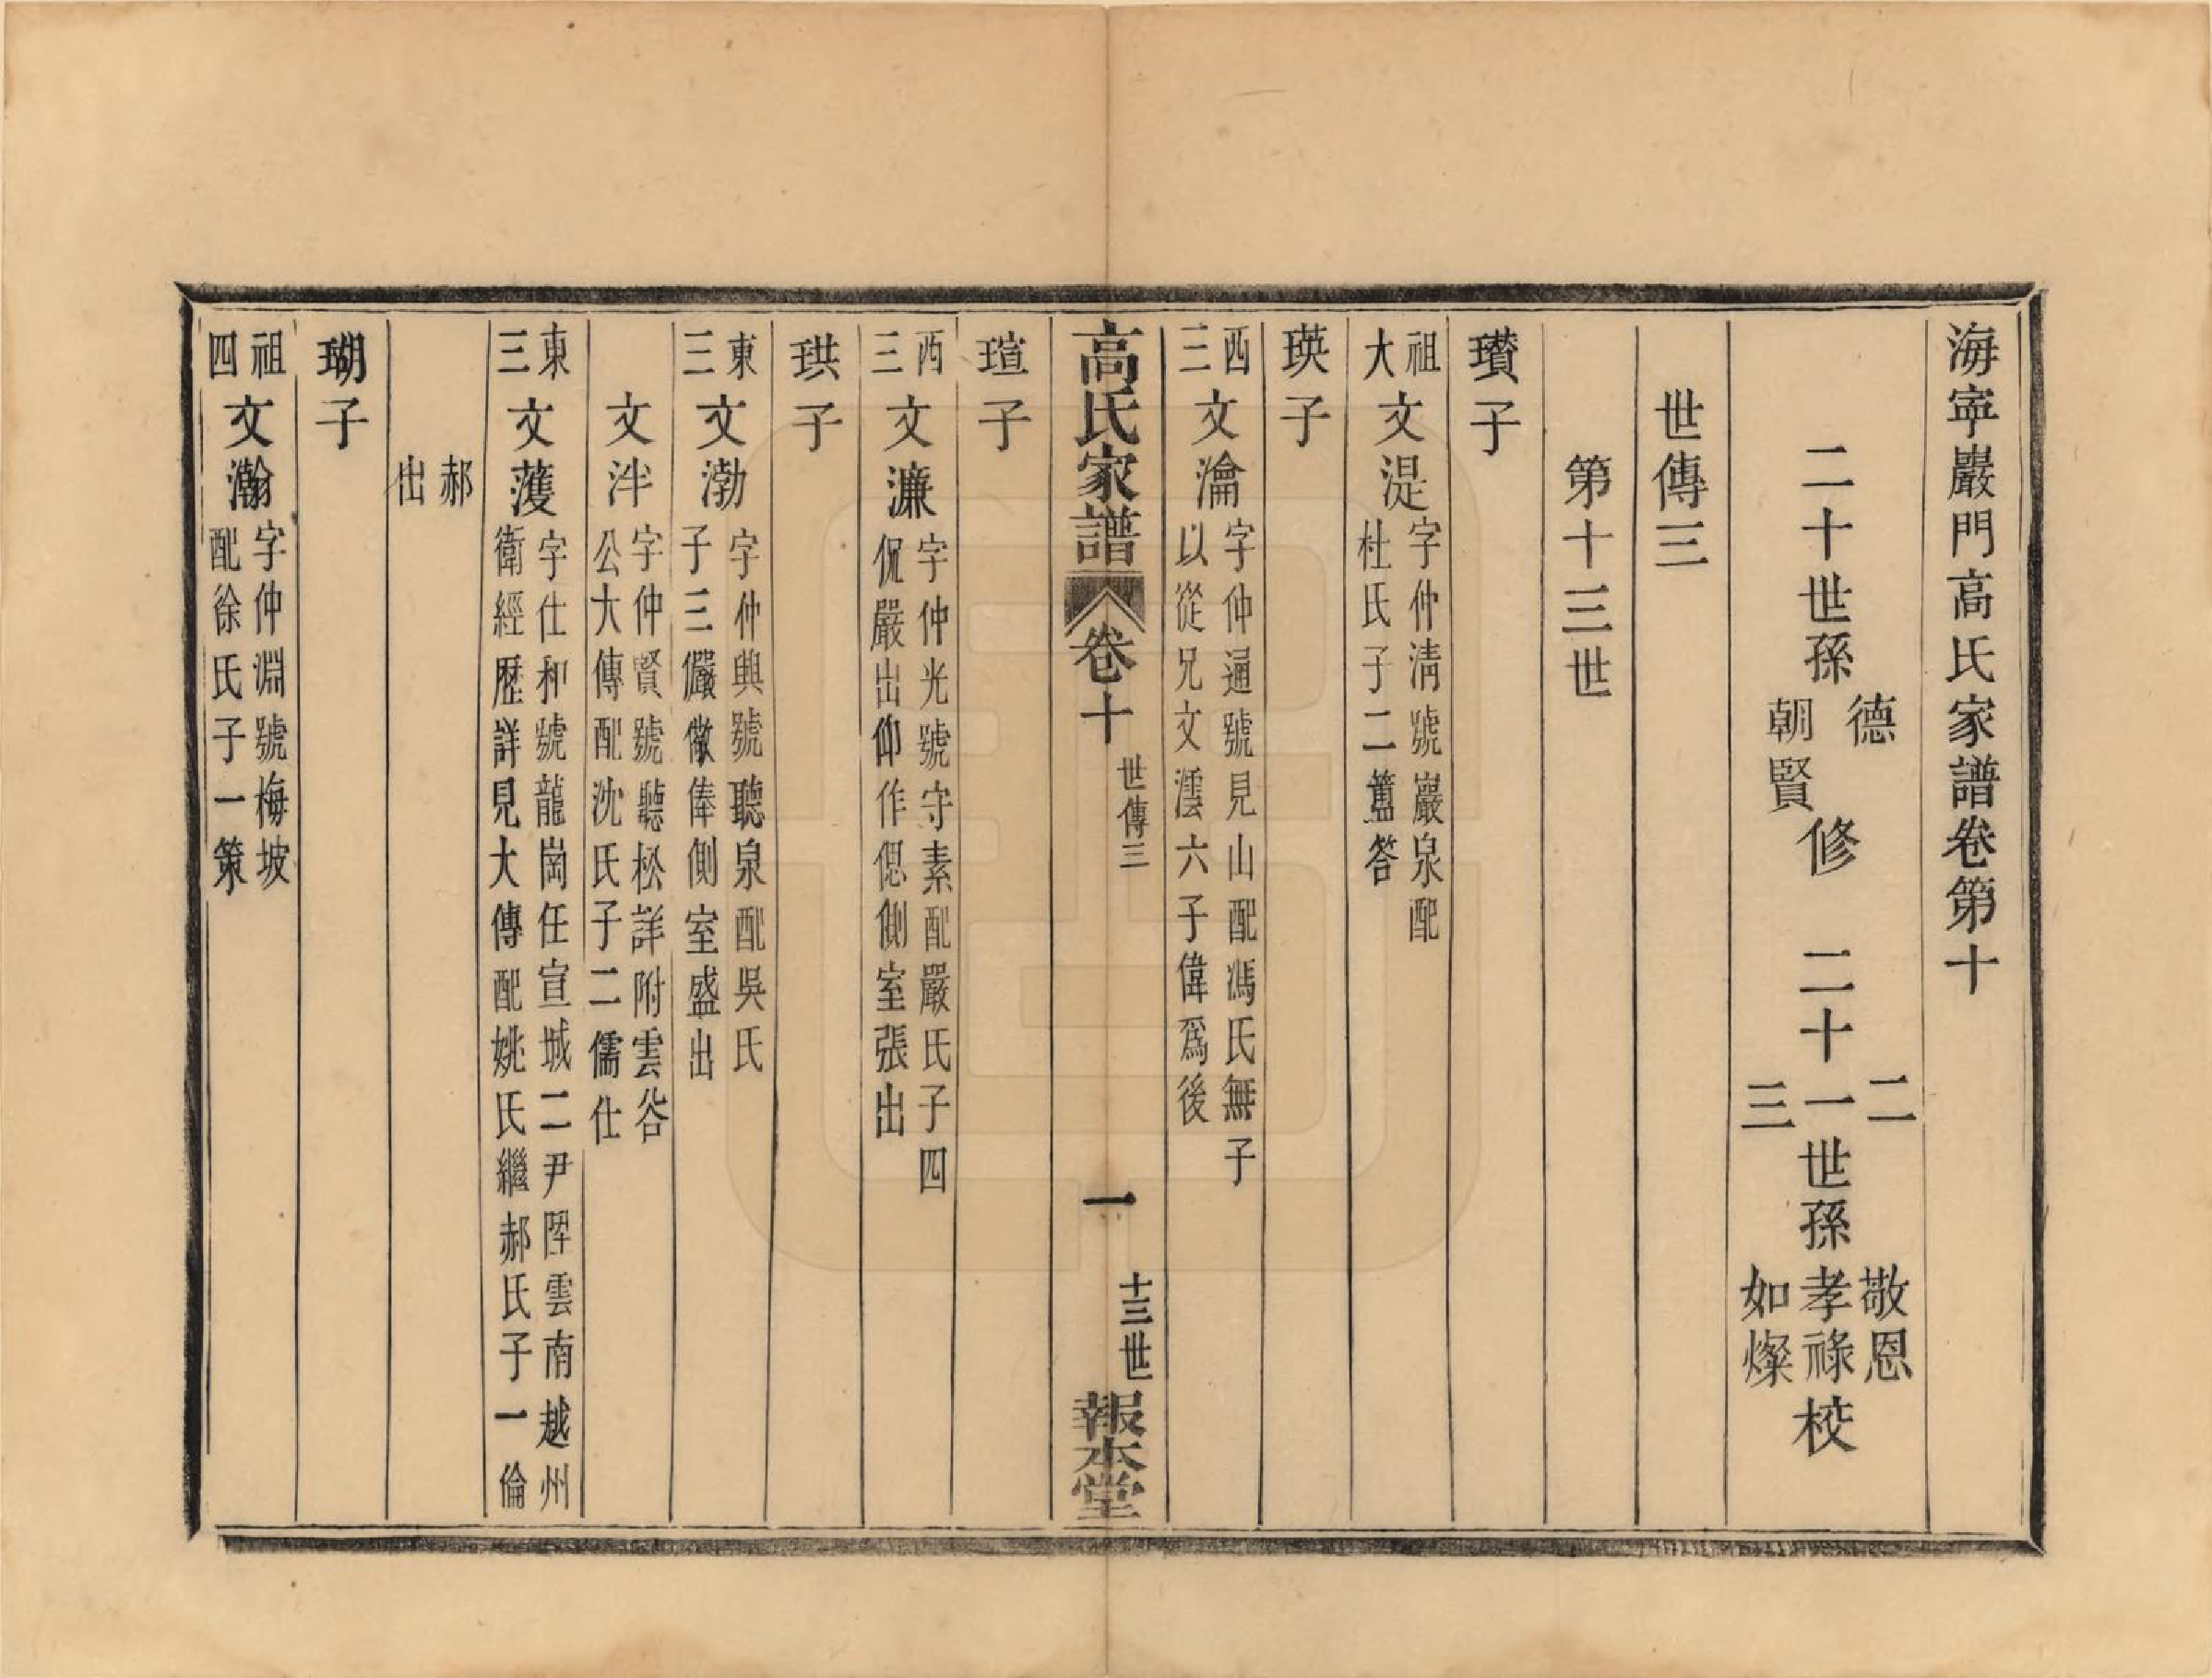 海寧巖門高氏家譜卷第十
二十世孫德朝賢修　二十一世孫二三敬恩孝祿如燦校
世傳三
第十三世
瓚子
祖大文湜字仲淸號巖泉配杜氏子二簠答
瑛子
西三文瀹字仲通號見山配馮氏無子以從兄文澐六子偉爲後
高氏家譜　卷十　世傳三　一　十三世　報本堂
瑄子
西三文濂字仲光號守素配嚴氏子四侃嚴出仰作偲側室張出
珙子
東三文渤字仲興號聽泉配吳氏子三儼儆俸側室盛出
文泮字仲賢號聽松詳附雲谷公大傳配沈氏子二儒仕
東三文蒦字仕和號龍崗任宣城二尹陞雲南越州衛經歷詳見大傳配姚氏繼郝氏子一倫
郝出
瑚子
祖四文瀚字仲淵號梅坡配徐氏子一策